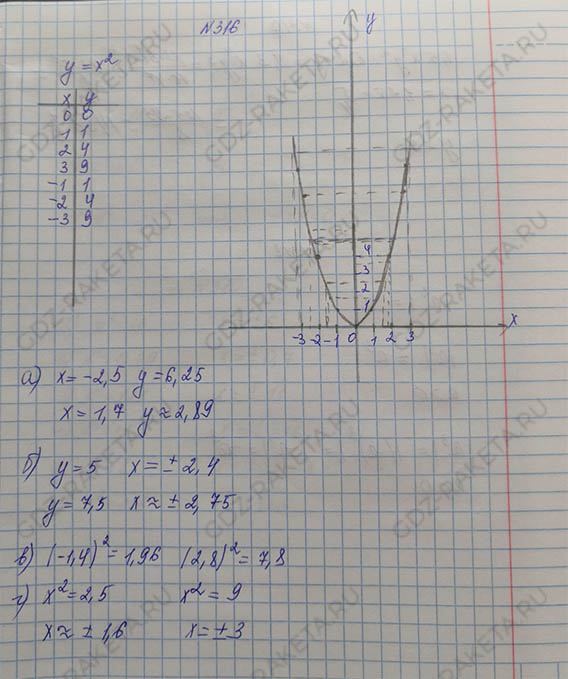 N316
y = x²
x y
0 0
1 1
2 4
3 9
-1 1
-2 4
-3 9
y
4
3
2
1
-3 -2 -1 0 1 2 3
x
а) x = -2,5 y = 6,25
x = 1,7 y ≈ 2,89
б) y = 5 x = ± 2,4
y = 7,5 x ≈ ± 2,75
в) (-1,4)² = 1,96 (2,8)² = 7,8
г) x² = 2,5 x² = 9
x ≈ ± 1,6 x = ± 3
GDZ-RAKETA.RU